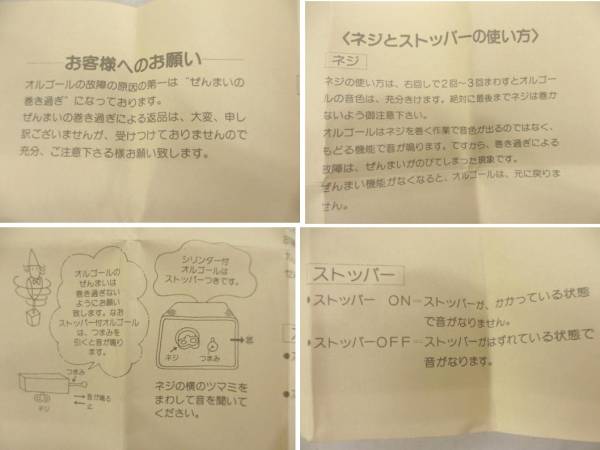 お客様へのお願い
オルゴールの故障の原因の第一は"ぜんまいの
巻き過ぎ"になっております。
ぜんまいの巻き過ぎによる返品は、大変、申し
訳ございませんが、受けつけておりませんので
充分、ご注意下さる様お願い致します。
〈ネジとストッパーの使い方〉
ネジ
ネジの使い方は、右回しで2回〜3回まわすとオルゴー
ルの音色は、充分きけます。絶対に最後までネジは巻か
ないよう御注意下さい。
オルゴールはネジを巻く作業で音色が出るのではなく、
もどる機能で音が鳴ります。ですから、巻き過ぎによる
故障は、ぜんまいがのびてしまった現象です。
ぜんまい機能がなくなると、オルゴールは、元に戻りま
せん。
オルゴールの
ぜんまいは
巻き過ぎない
ようにお願い
致します。なお
ストッパー付オルゴール
は、つまみを
引くと音が鳴り
ます。
つまみ
ネジ
音が鳴る
止
シリンダー付
オルゴールは
ストッパーつきです。
ネジ
つまみ
ネジの横のツマミを
まわして音を聞いて
ください。
ストッパー
•ストッパー ON=ストッパーが、かかっている状態
で音がなりません。
•ストッパーOFF=ストッパーがはずれている状態で
音がなります。